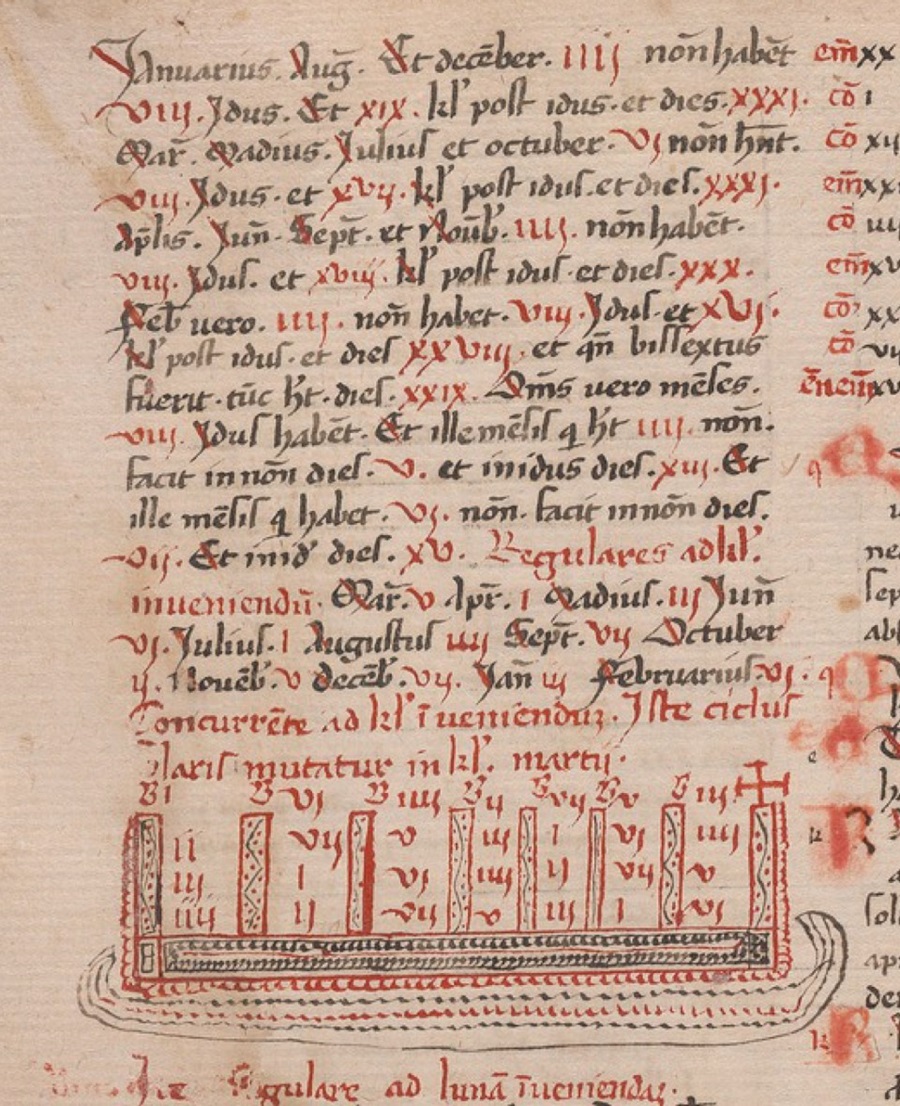 Januarius. Aug̃. Et decẽber. IIIJ non̄ habẽt
VIIJ. Jdus. Et XIX. kl' post idus. et dies. XXXJ.
Mar̃. Madius. Julius et octuber. VJ non̄ hñt.
VIIJ. Jdus. et XVIJ. kl' post idus. et dies. XXXJ.
Ap̃lis. Jun̄. Sept̃. et Nouẽb'. IIIJ. non̄ habẽt.
VIIJ. Jdus. et XVIIJ. kl' post idus. et dies. XXX.
Feb' uero. IIIJ. non̄ habet. VIIJ. Jdus. et XVJ.
kl' post idus. et dies XXVIIJ. et qn̄ bissextus
fuerit. tũc h't. dies. XXIX. Om̄s uero mẽses.
VIIJ. Jdus habẽt. Et ille mẽsis q h't IIIJ non̄.
facit in non̄ dies. V. et in idus dies. XIIJ. Et
ille mẽsis q habet. VJ. non̄. facit in non̄ dies.
VIJ. Et in id' dies. XV. Regulares ad kl'.
inueniendũ. Mar̃. V Apr̃. I Madius. IIJ Jun̄
VJ. Julius. I Augustus IIIJ Sept̃. VIJ Octuber
IJ. Nouẽb'. V decẽb'. VIJ. Jan̄ IIJ Februarius. VJ.
Concurrẽte ad kl' ĩueniendũ. Iste ciclus
laris mutatur in kl'. martij.
B I B VJ B IIIJ B IJ B VIJ B V B IIJ
II VIJ V IIJ I VJ IIIJ
IIJ I VJ IIIJ IJ VIJ V
IIIJ IJ VIJ V IIJ I VJ
gulare ad lunã ĩueniendaz.
em̃ XX
cõ I
cõ
em̃
cõ
em̃
cõ
cõ